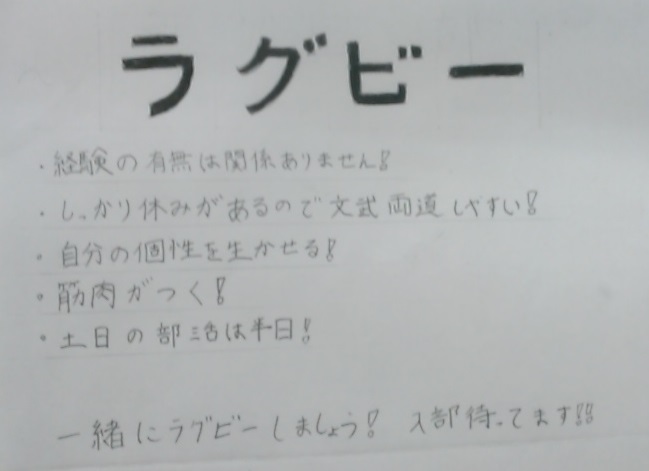 ラグビー
・経験の有無は関係ありません!
・しっかり休みがあるので文武両道しやすい!
・自分の個性を生かせる!
・筋肉がつく!
・土日の部活は半日!
一緒にラグビーしましょう! 入部待ってます!!